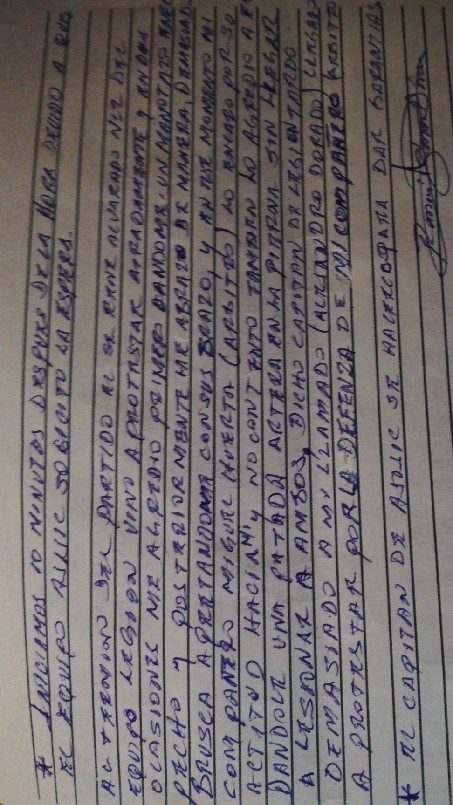 * INICIAMOS 10 MINUTOS DESPUES DE LA HORA DEVIDO A QUE
EL EQUIPO ASLIC SOLICITO LA ESPERA.
AL TERMINO DEL PARTIDO EL SR RENE ALVARADO Nº2 DEL
EQUIPO LEGION VINO A PROTESTAR AIRADAMENTE Y EN DOS
OCASIONES ME AGREDIO PRIMERO DANDOME UN MANOTAZO EN EL
PECHO Y POSTERIORMENTE ME ABRAZO DE MANERA DEMASIADO
BRUSCA APRETANDOME CON SUS BRAZO, Y EN ESE MOMENTO MI
COMPAÑERO MIGUEL HUERTA (ARBITRO) LO ENCARO POR SU
ACTITUD HACIA MI Y NO CONTENTO TAMBIEN LO AGREDIO A EL
DANDOLE UNA PATADA ARTERA EN LA PIERNA SIN LLEGAR
A LESIONAR A AMBOS, DICHO CAPITAN DE LEGION TARDO
DEMASIADO A MI LLAMADO (ALEJANDRO DORADO) LLEGANDO
A PROTESTAR POR LA DEFENZA DE MI COMPAÑERO ARBITRO
* EL CAPITAN DE ASLIC SE DAR GARANTIAS